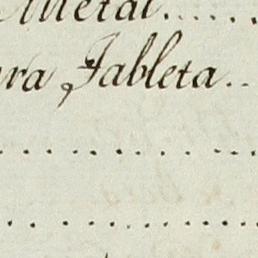 Metal......
ra Tableta..